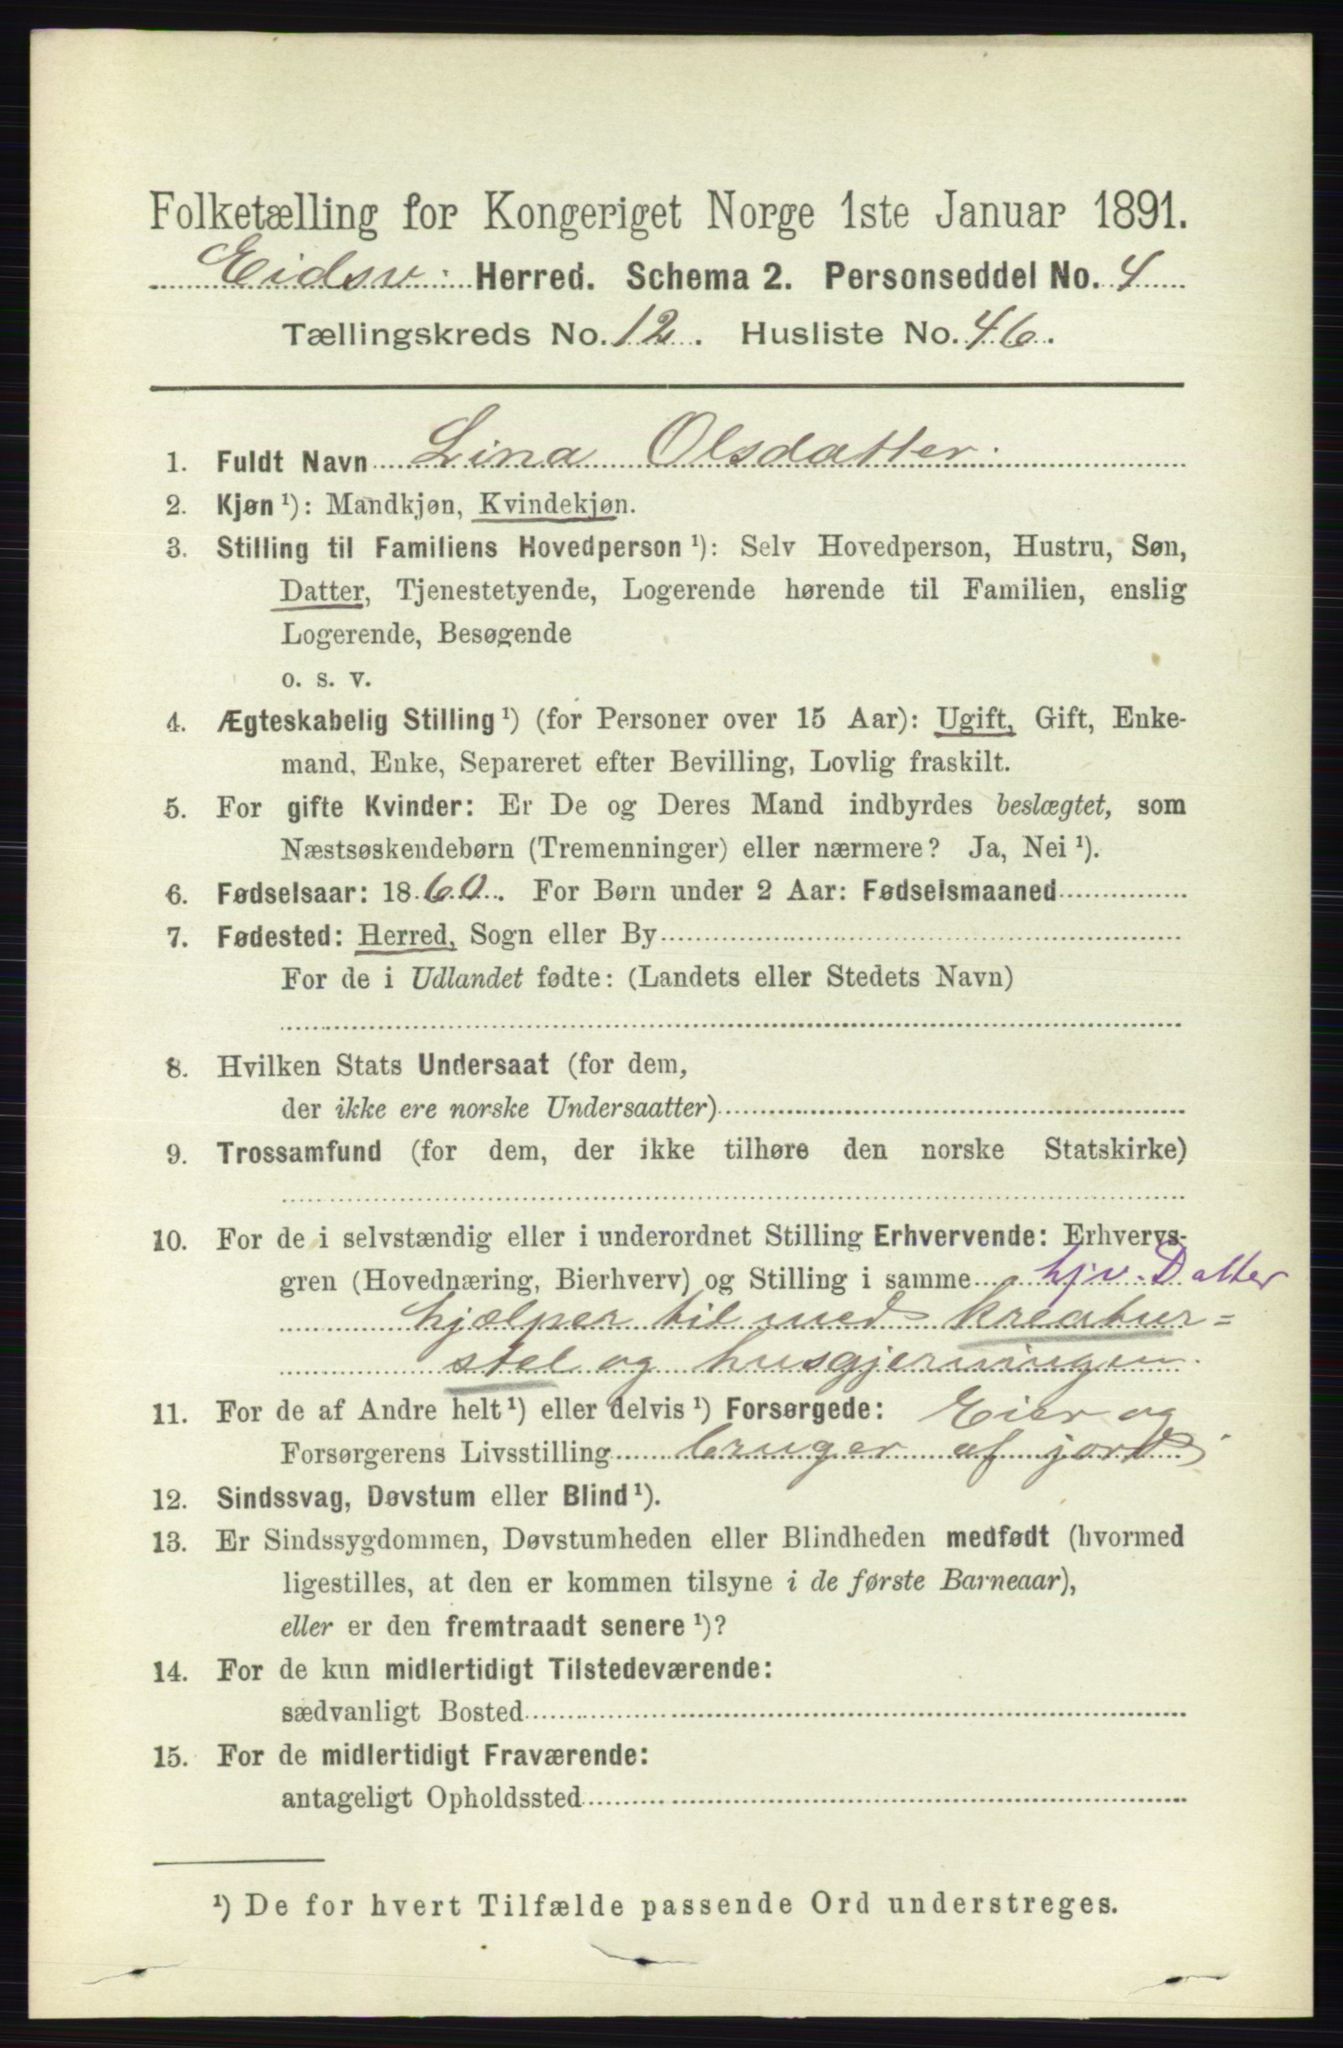 Folketælling for Kongeriget Norge 1ste Januar 1891.
Eidsv: Herred. Schema 2. Personseddel No. 4
Tællingskreds No. 12. Husliste No. 46.
1. Fuldt Navn Lina Olsdatter.
2. Kjøn ¹): Mandkjøn, Kvindekjøn.
3. Stilling til Familiens Hovedperson ¹): Selv Hovedperson, Hustru, Søn,
Datter, Tjenestetyende, Logerende hørende til Familien, enslig
Logerende, Besøgende
o. s. v.
4. Ægteskabelig Stilling ¹) (for Personer over 15 Aar): Ugift, Gift, Enke-
mand, Enke, Separeret efter Bevilling, Lovlig fraskilt.
5. For gifte Kvinder: Er De og Deres Mand indbyrdes beslægtet, som
Næstsøskendebørn (Tremenninger) eller nærmere? Ja, Nei ¹).
6. Fødselsaar: 1860. For Børn under 2 Aar: Fødselsmaaned
7. Fødested: Herred, Sogn eller By
For de i Udlandet fødte: (Landets eller Stedets Navn)
8. Hvilken Stats Undersaat (for dem,
der ikke ere norske Undersaatter)
9. Trossamfund (for dem, der ikke tilhøre den norske Statskirke)
10. For de i selvstændig eller i underordnet Stilling Erhvervende: Erhvervs-
gren (Hovednæring, Bierhverv) og Stilling i samme hjv. Datter
hjælper til med kreatur=
stel og husgjerningen.
11. For de af Andre helt ¹) eller delvis ¹) Forsørgede: Eier og
Forsørgerens Livsstilling bruger af jord.
12. Sindssvag, Døvstum eller Blind ¹).
13. Er Sindssygdommen, Døvstumheden eller Blindheden medfødt (hvormed
ligestilles, at den er kommen tilsyne i de første Barneaar),
eller er den fremtraadt senere ¹)?
14. For de kun midlertidigt Tilstedeværende:
sædvanligt Bosted
15. For de midlertidigt Fraværende:
antageligt Opholdssted
¹) De for hvert Tilfælde passende Ord understreges.